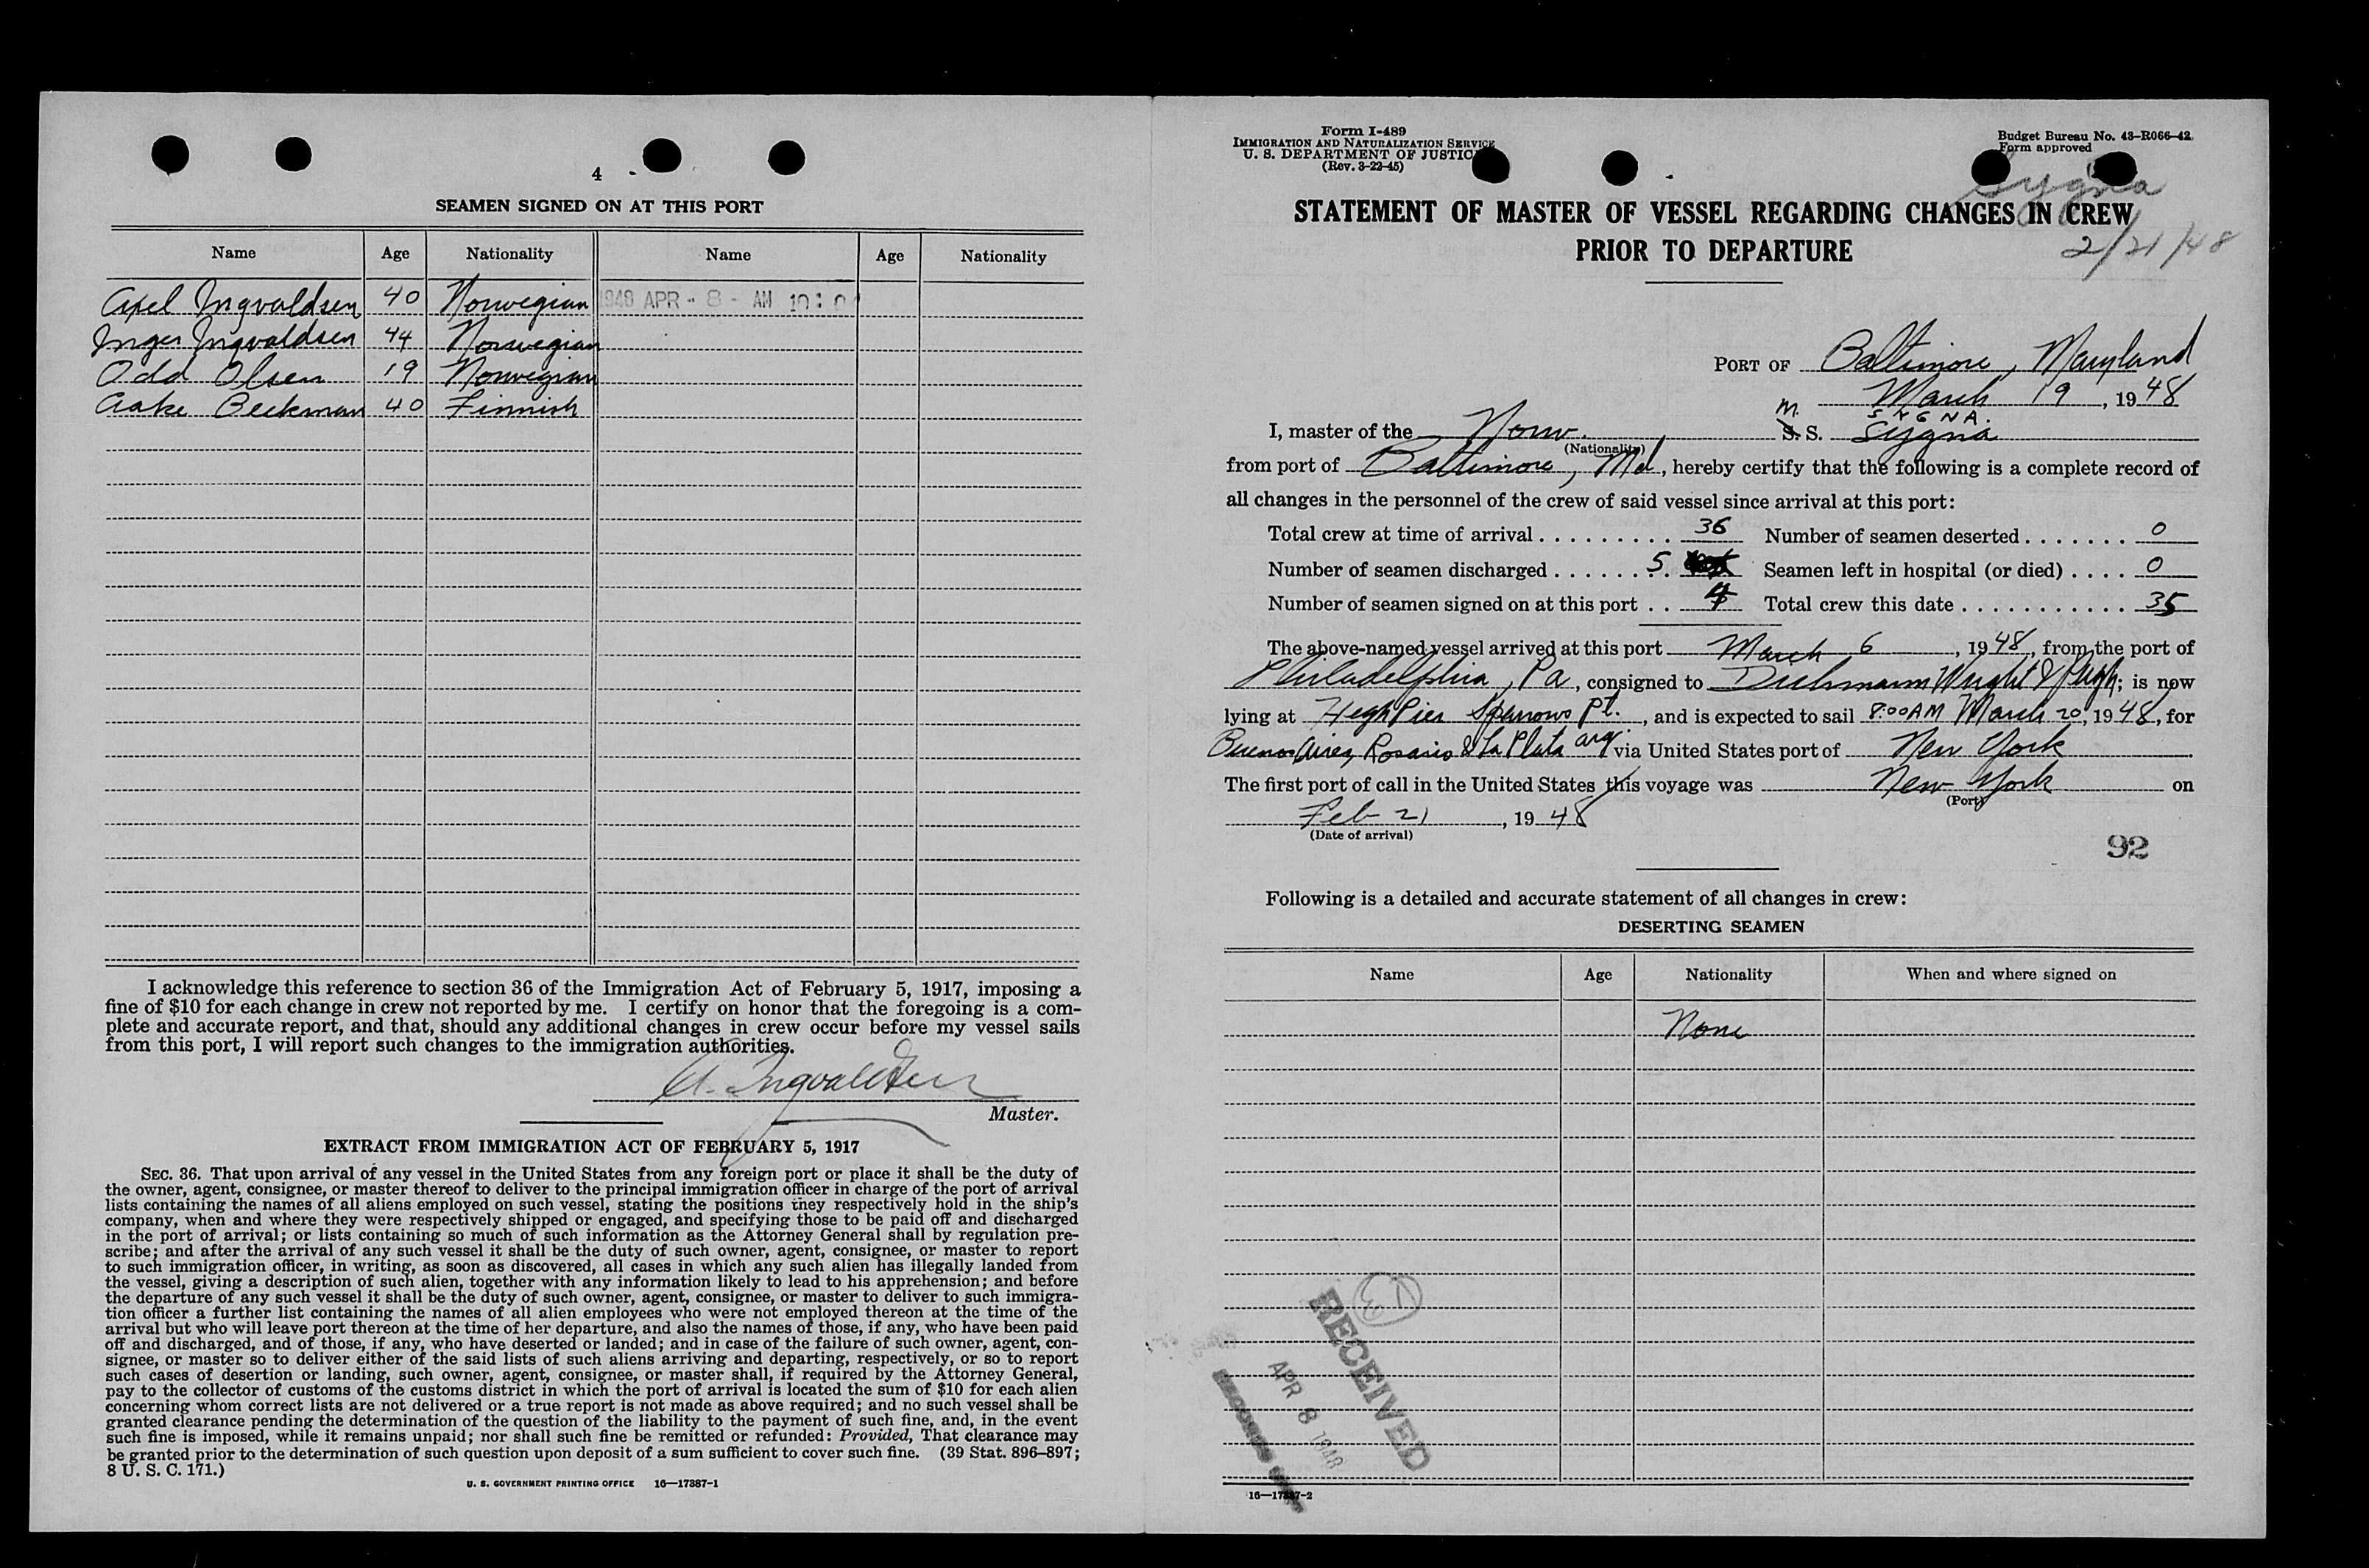 4
SEAMEN SIGNED ON AT THIS PORT
Name Age Nationality Name Age Nationality
Axel Ingvaldsen 40 Norwegian 1948 APR - 8 - AM 10:0
Inger Ingvaldsen 44 Norwegian
Odd Olsen 19 Norwegian
Aake Beckman 40 Finnish
I acknowledge this reference to section 36 of the Immigration Act of February 5, 1917, imposing a
fine of $10 for each change in crew not reported by me. I certify on honor that the foregoing is a com-
plete and accurate report, and that, should any additional changes in crew occur before my vessel sails
from this port, I will report such changes to the immigration authorities.
A. Ingvaldsen
Master.
EXTRACT FROM IMMIGRATION ACT OF FEBRUARY 5, 1917
SEC. 36. That upon arrival of any vessel in the United States from any foreign port or place it shall be the duty of
the owner, agent, consignee, or master thereof to deliver to the principal immigration officer in charge of the port of arrival
lists containing the names of all aliens employed on such vessel, stating the positions they respectively hold in the ship's
company, when and where they were respectively shipped or engaged, and specifying those to be paid off and discharged
in the port of arrival; or lists containing so much of such information as the Attorney General shall by regulation pre-
scribe; and after the arrival of any such vessel it shall be the duty of such owner, agent, consignee, or master to report
to such immigration officer, in writing, as soon as discovered, all cases in which any such alien has illegally landed from
the vessel, giving a description of such alien, together with any information likely to lead to his apprehension; and before
the departure of any such vessel it shall be the duty of such owner, agent, consignee, or master to deliver to such immigra-
tion officer a further list containing the names of all alien employees who were not employed thereon at the time of the
arrival but who will leave port thereon at the time of her departure, and also the names of those, if any, who have been paid
off and discharged, and of those, if any, who have deserted or landed; and in case of the failure of such owner, agent, con-
signee, or master so to deliver either of the said lists of such aliens arriving and departing, respectively, or so to report
such cases of desertion or landing, such owner, agent, consignee, or master shall, if required by the Attorney General,
pay to the collector of customs of the customs district in which the port of arrival is located the sum of $10 for each alien
concerning whom correct lists are not delivered or a true report is not made as above required; and no such vessel shall be
granted clearance pending the determination of the question of the liability to the payment of such fine, and, in the event
such fine is imposed, while it remains unpaid; nor shall such fine be remitted or refunded: Provided, That clearance may
be granted prior to the determination of such question upon deposit of a sum sufficient to cover such fine. (39 Stat. 896–897;
8 U. S. C. 171.)
U. S. GOVERNMENT PRINTING OFFICE 16—17387-1
Form I-489
IMMIGRATION AND NATURALIZATION SERVICE
U. S. DEPARTMENT OF JUSTIC
(Rev. 3-22-45)
Budget Bureau No. 43-R066-42
Form approved
Sygna
STATEMENT OF MASTER OF VESSEL REGARDING CHANGES IN CREW
PRIOR TO DEPARTURE
2/21/48
PORT OF Baltimore, Maryland
March 19, 1948
SYGNA.
I, master of the Norw. M. S. S. Sygna
(Nationality)
from port of Baltimore, Md, hereby certify that the following is a complete record of
all changes in the personnel of the crew of said vessel since arrival at this port:
Total crew at time of arrival 36 Number of seamen deserted 0
Number of seamen discharged 5 Seamen left in hospital (or died) 0
Number of seamen signed on at this port 4 Total crew this date 35
The above-named vessel arrived at this port March 6, 1948, from the port of
Philadelphia, Pa, consigned to Wright & Pugh; is now
lying at High Pier Sparrows Pt., and is expected to sail 8:00 AM March 20, 1948, for
Buenos Aires, Rosario & La Plata Arg. via United States port of New York
The first port of call in the United States this voyage was New York on
(Port)
Feb 21, 1948
(Date of arrival)
92
Following is a detailed and accurate statement of all changes in crew:
DESERTING SEAMEN
Name Age Nationality When and where signed on
None
RECEIVED
APR 8 1948
16—17387-2